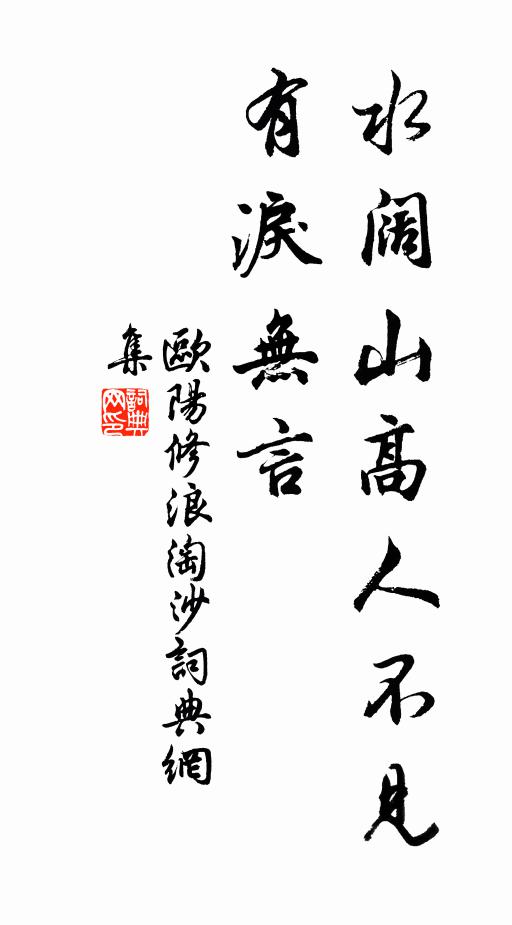 水阔山高人不見
有淚無言
歐陽修浪淘沙詞典網
集
詞典
网印